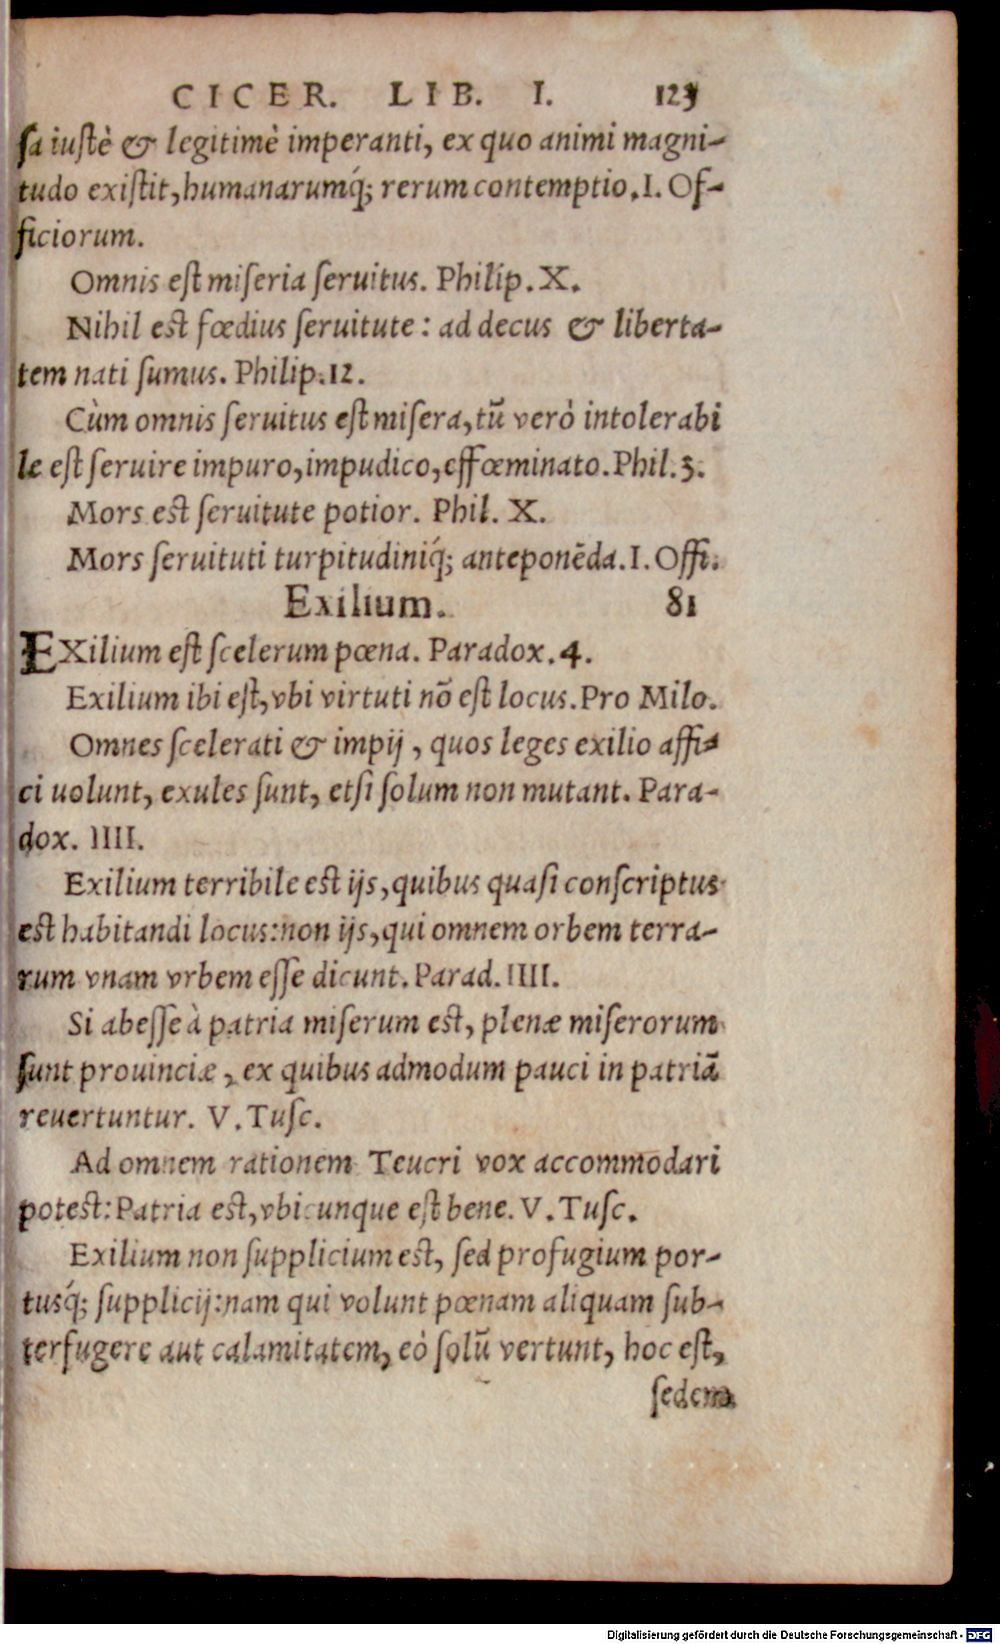 CICER. LIB. I. 123
ſa iuſtè & legitimè imperanti, ex quo animi magni-
tudo exiſtit, humanarumq́; rerum contemptio. I. Of-
ficiorum.
Omnis eſt miſeria ſeruitus. Philip. X.
Nihil eſt fœdius ſeruitute: ad decus & liberta-
tem nati ſumus. Philip. 12.
Cùm omnis ſeruitus eſt miſera, tũ verò intolerabi
le eſt ſeruire impuro, impudico, effœminato. Phil. 3.
Mors eſt ſeruitute potior. Phil. X.
Mors ſeruituti turpitudiniq́; anteponẽda. I. Offi.
Exilium. 81
EXilium eſt ſcelerum pœna. Paradox. 4.
Exilium ibi eſt, vbi virtuti nõ eſt locus. Pro Milo.
Omnes ſcelerati & impij, quos leges exilio affi-
ci uolunt, exules ſunt, etſi ſolum non mutant. Para-
dox. IIII.
Exilium terribile eſt ijs, quibus quaſi conſcriptus
eſt habitandi locus: non ijs, qui omnem orbem terra-
rum vnam vrbem eſſe dicunt. Parad. IIII.
Si abeſſe à patria miſerum eſt, plenæ miſerorum
ſunt prouinciæ, ex quibus admodum pauci in patriã
reuertuntur. V. Tuſc.
Ad omnem rationem Teucri vox accommodari
poteſt: Patria eſt, vbicunque eſt bene. V. Tuſc.
Exilium non ſupplicium eſt, ſed profugium por-
tusq́; ſupplicij: nam qui volunt pœnam aliquam ſub-
terfugere aut calamitatem, eò ſolũ vertunt, hoc eſt,
ſedem
Digitalisierung gefördert durch die Deutsche Forschungsgemeinschaft - DFG